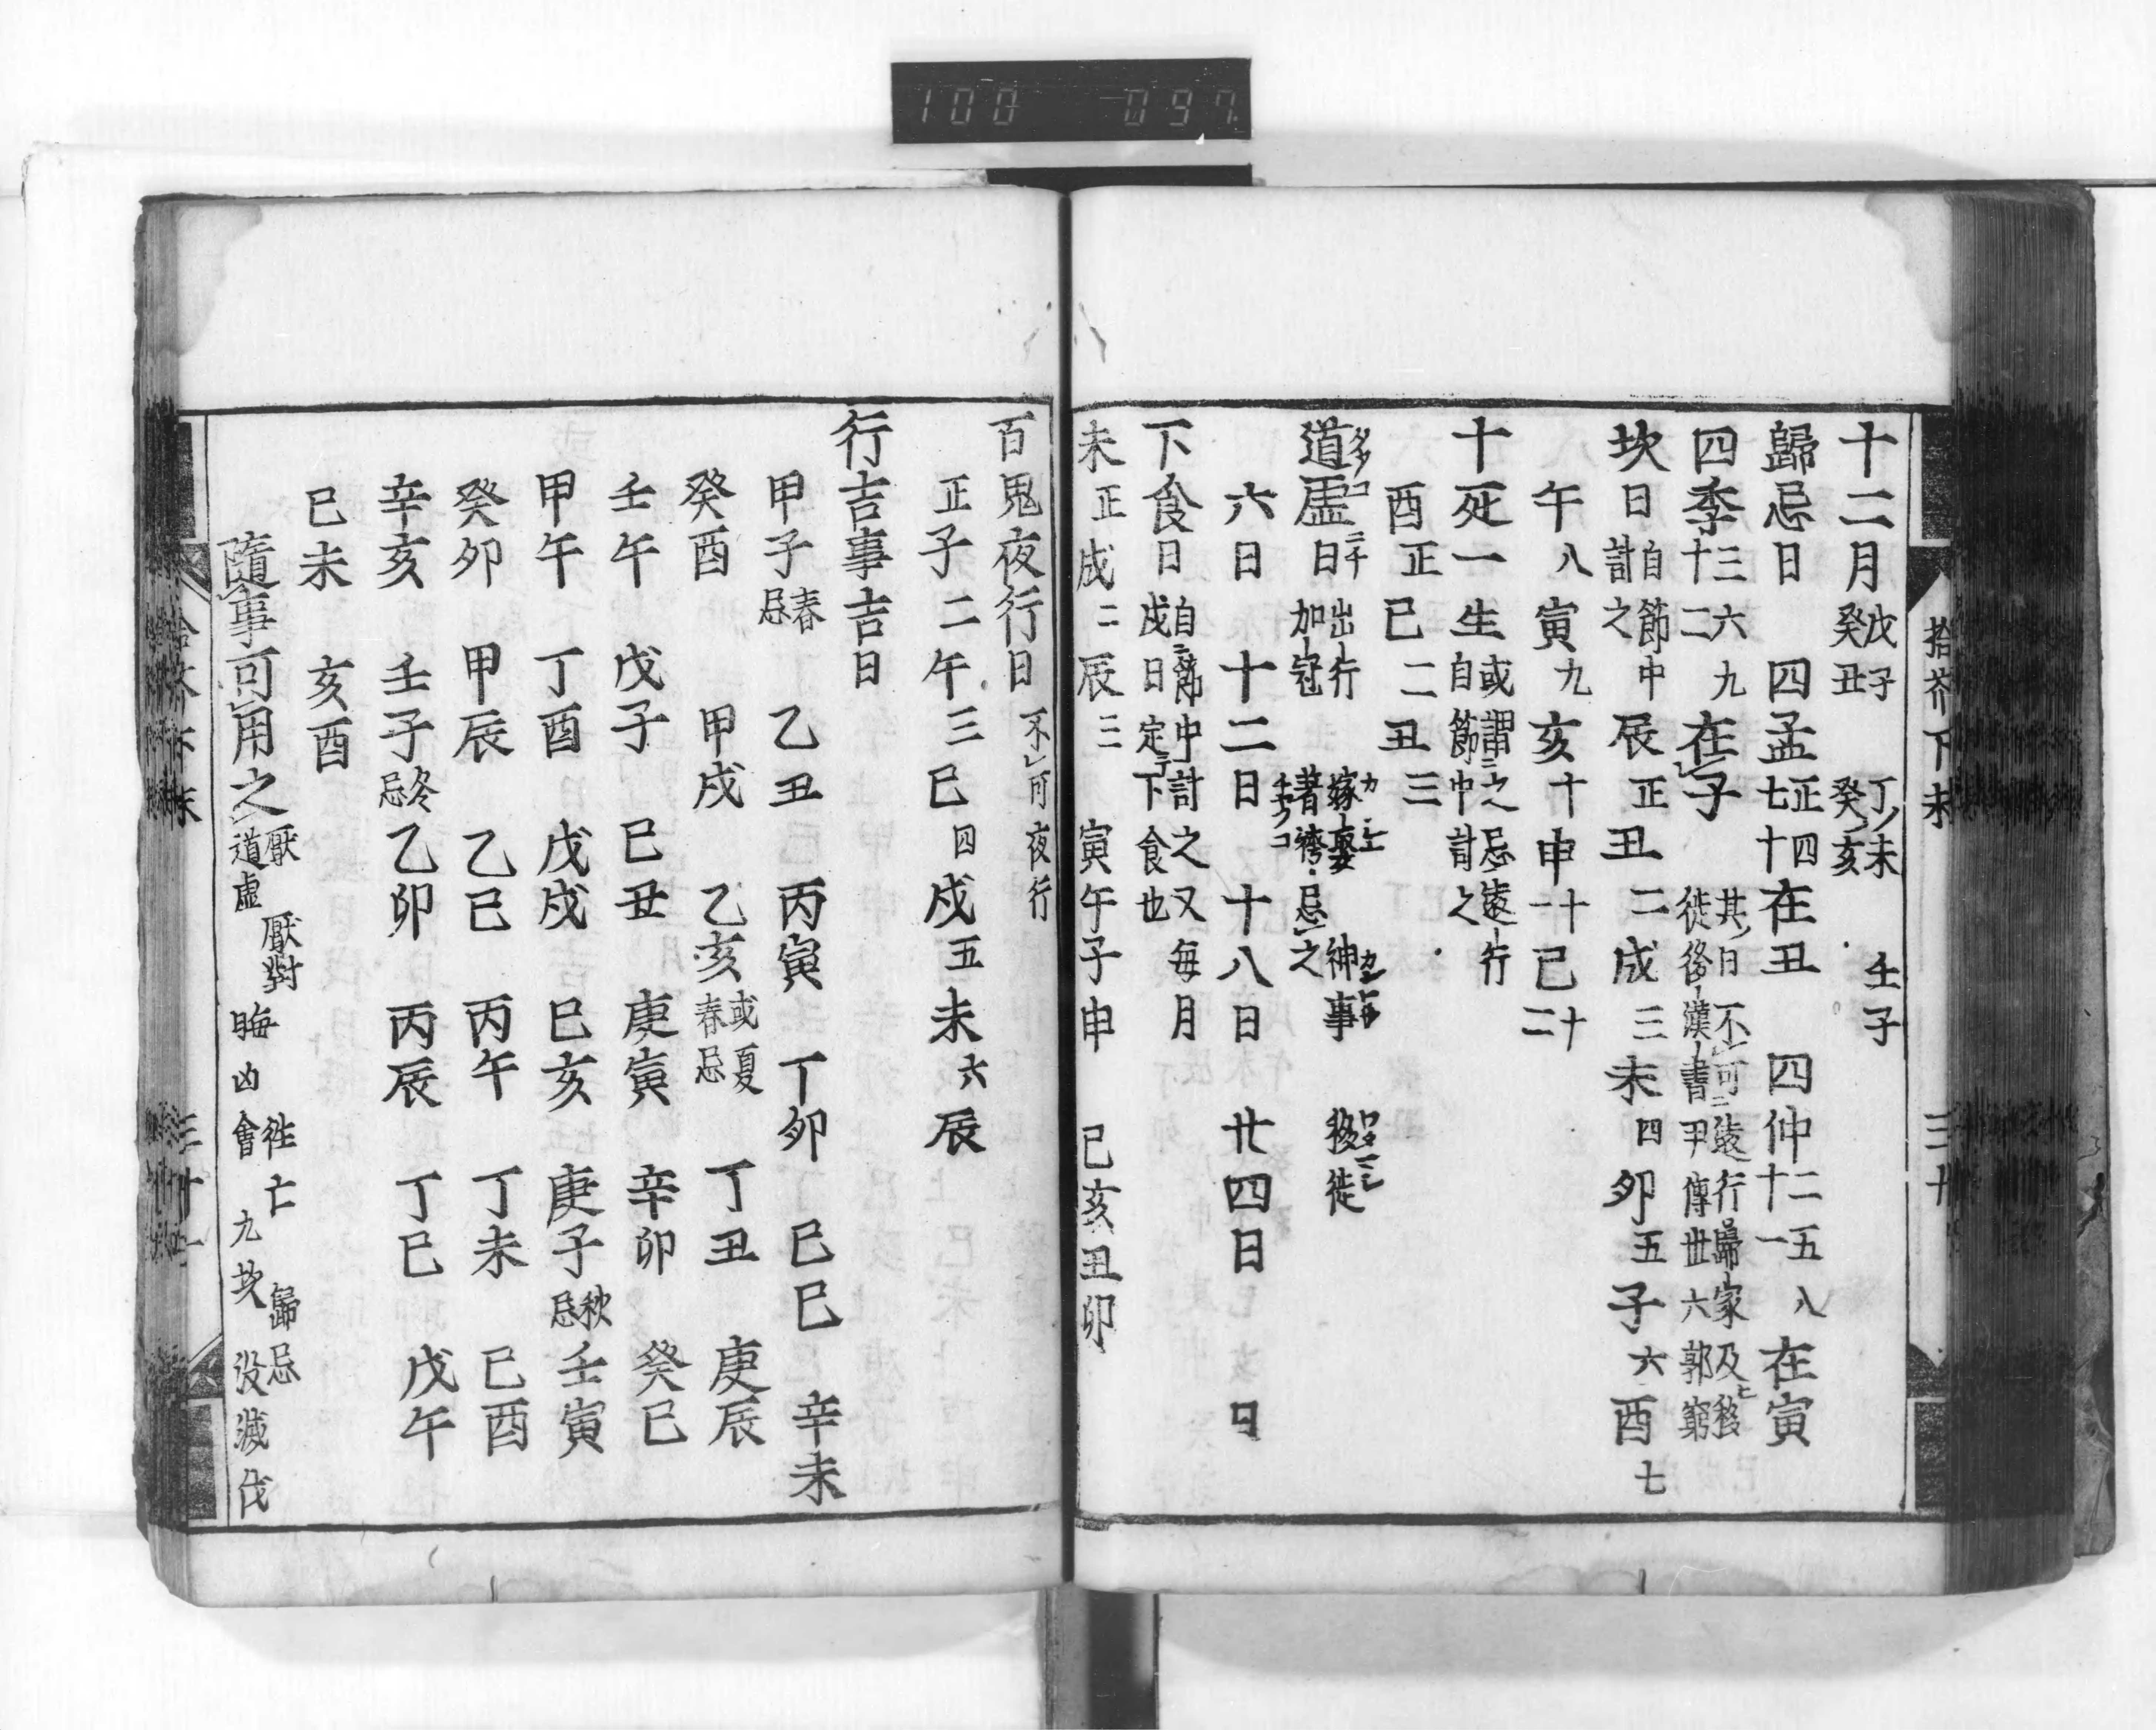 100 -097
拾芥下末 三十
十二月 戊子 癸丑 丁未 癸亥 壬子
歸忌日 四孟 正四七十 在丑 四仲 二五八十一 在寅
四季 三六九十二 在子 其日不可遠行歸家及移徙後漢書 傳卅六郭躬
坎日 自節中計之 辰正 丑二 戌三 未四 卯五 子六 酉七
午八 寅九 亥十 申十一 巳十二
十死一生 或謂之忌遠行 自節中計之
酉正 巳二 丑三
道虛日 出行 嫁娶 神事 移徙 加冠 著袴忌之
六日 十二日 十八日 廿四日 日
下食日 自節中計之又每月 戌日定下食也
未正 戌二 辰三 寅午子申 巳亥丑卯
百鬼夜行日 不可夜行
正子 二午 三巳 四戌 五未 六辰
行吉事吉日
甲子 春忌 乙丑 丙寅 丁卯 己巳 辛未
癸酉 甲戌 乙亥 或夏春忌 丁丑 庚辰
壬午 戊子 己丑 庚寅 辛卯 癸巳
甲午 丁酉 戊戌 己亥 庚子 秋忌 壬寅
癸卯 甲辰 乙巳 丙午 丁未 己酉
辛亥 壬子 冬忌 乙卯 丙辰 丁巳 戊午
己未 亥酉
隨事可用之 厭 厭對 往亡 歸忌 道虛 晦 凶會 九坎 沒滅 伐